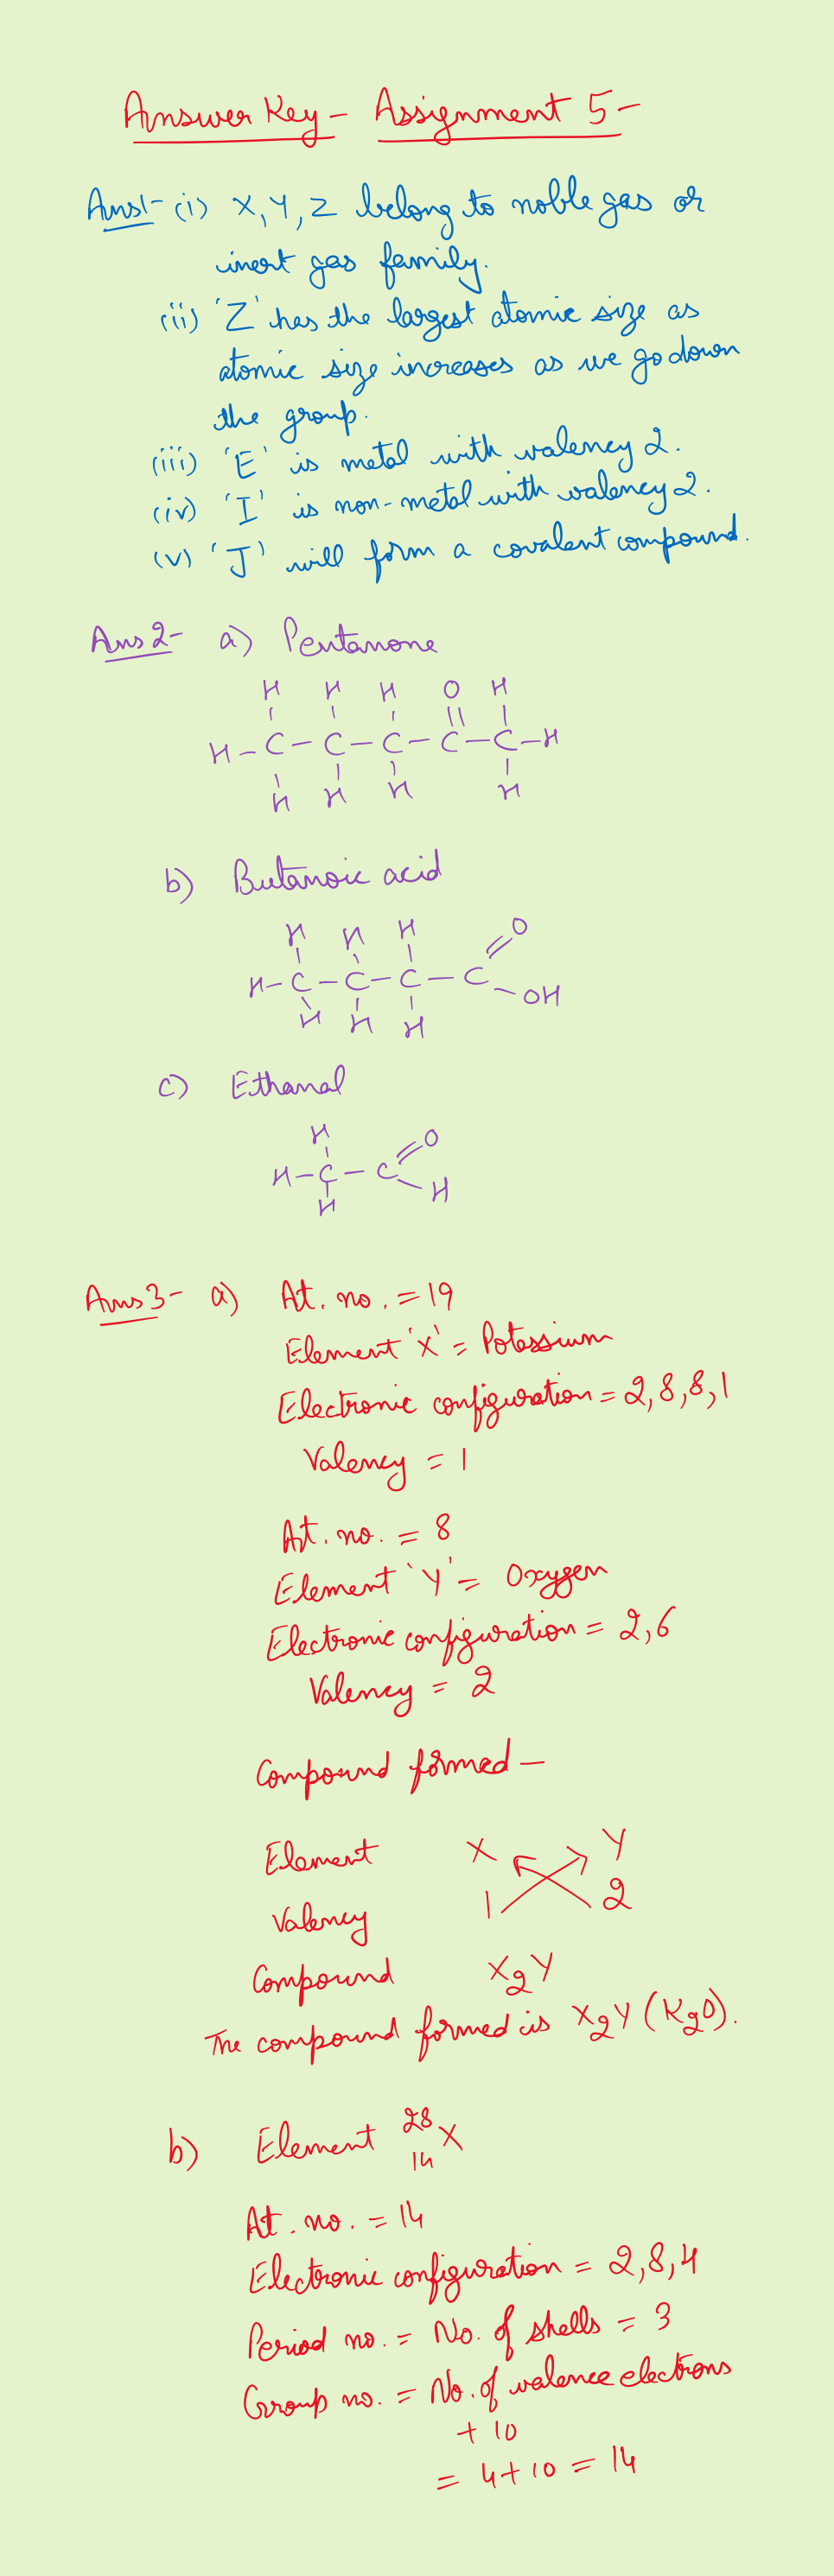 Answer Key - Assignment 5 -
Ans1- (i) X, Y, Z belong to noble gas or
inert gas family.
(ii) 'Z' has the largest atomic size as
atomic size increases as we go down
the group.
(iii) 'E' is metal with valency 2.
(iv) 'I' is non-metal with valency 2.
(v) 'J' will form a covalent compound.
Ans 2- a) Pentanone
H H H O H
H-C-C-C-C-C-H
H H H H
b) Butanoic acid
H H H O
H-C-C-C-C
-OH
H H H
c) Ethanal
H O
H-C-C
H H
Ans 3- a) At. no. = 19
Element 'X' = Potassium
Electronic configuration = 2,8,8,1
Valency = 1
At. no. = 8
Element 'Y' = Oxygen
Electronic configuration = 2,6
Valency = 2
Compound formed -
Element X Y
Valency 1 2
Compound X₂Y
The compound formed is X₂Y (K₂O).
b) Element ²⁸₁₄X
At. no. = 14
Electronic configuration = 2,8,4
Period no. = No. of shells = 3
Group no. = No. of valence electrons
+ 10
= 4+10 = 14